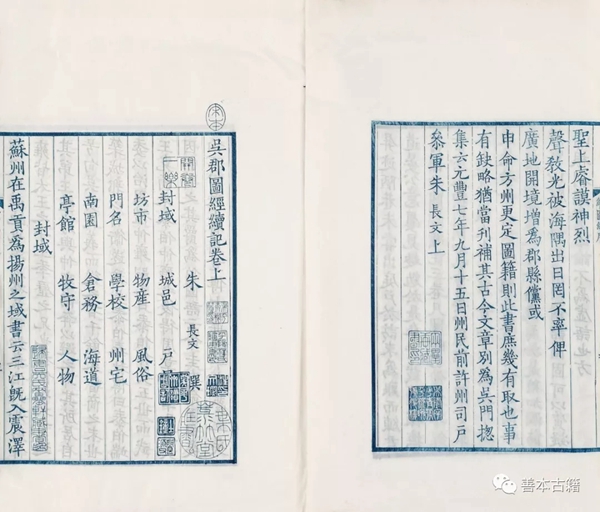 聖上睿謨神烈
聲教光被海隅出日罔不率俾
廣地開境增爲郡縣儻或
申命方州更定圖籍則此書庶幾有取也事
有缺略猶當刊補其古今文章別爲吳門揔
集云元豐七年九月十五日州民前許州司戶
參軍朱長文上
宋本
吳郡圖經續記卷上
朱長文 撰
封域 城邑 戶
坊市 物產 風俗
門名 學校 州宅
南園 倉務 海道
亭館 牧守 人物
封域
蘇州在禹貢爲揚州之域書云三江既入震澤
善本古籍